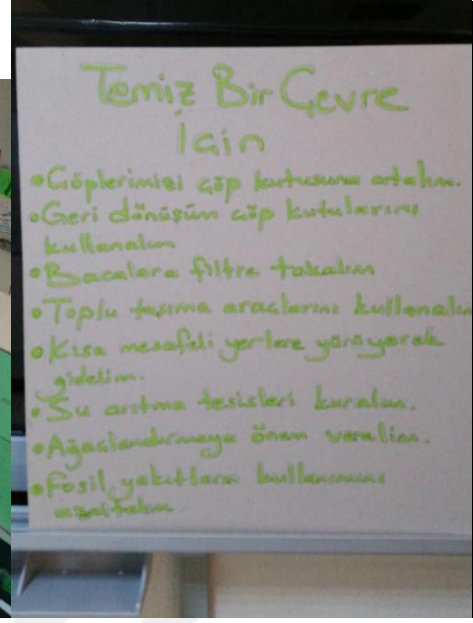 Temiz Bir Çevre
İçin
• Çöplerimizi çöp kutusuna atalım.
• Geri dönüşüm çöp kutularını
kullanalım
• Bacalara filtre takalım
• Toplu taşıma araçlarını kullanalım
• Kısa mesafeli yerlere yürüyerek
gidelim.
• Su arıtma tesisleri kuralım.
• Ağaçlandırmaya önem verelim.
• Fosil yakıtların kullanımını
azaltalım.